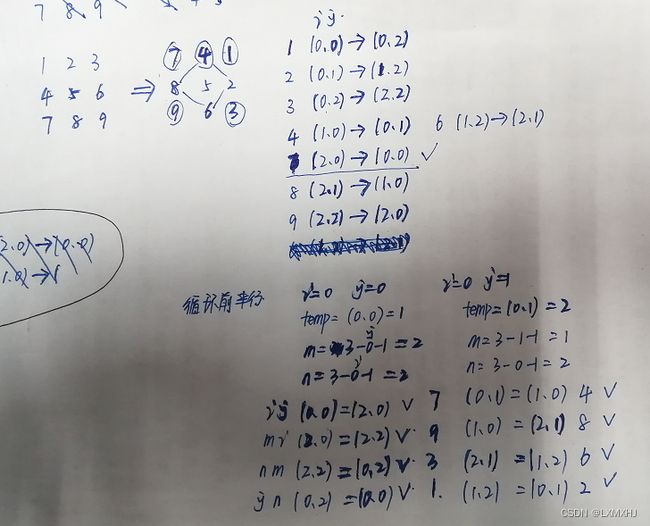 7 8 9
i j
1 2 3
4 5 6
7 8 9
⇒
7 4 1
8 5 2
9 6 3
1 (0,0)→(0,2)
2 (0,1)→(1,2)
3 (0,2)→(2,2)
4 (1,0)→(0,1) 6 (1,2)→(2,1)
7 (2,0)→(0,0) ✓
8 (2,1)→(1,0)
9 (2,2)→(2,0)
(2,0)→(0,0)
(1,0)→1
循环前半行
i=0 j=0
temp=(0,0)=1
m=3-0-1=2
n=3-0-1=2
i j (0,0)=(2,0) ✓ 7
m i (2,0)=(2,2) ✓ 9
n m (2,2)=(0,2) ✓ 3
j n (0,2)=(0,0) ✓ 1.
i=0 j=1
temp=(0,1)=2
m=3-1-1=1
n=3-0-1=2
(0,1)=(1,0) 4 ✓
(1,0)=(2,1) 8 ✓
(2,1)=(1,2) 6 ✓
(1,2)=(0,1) 2 ✓
CSDN @LXMXHJ